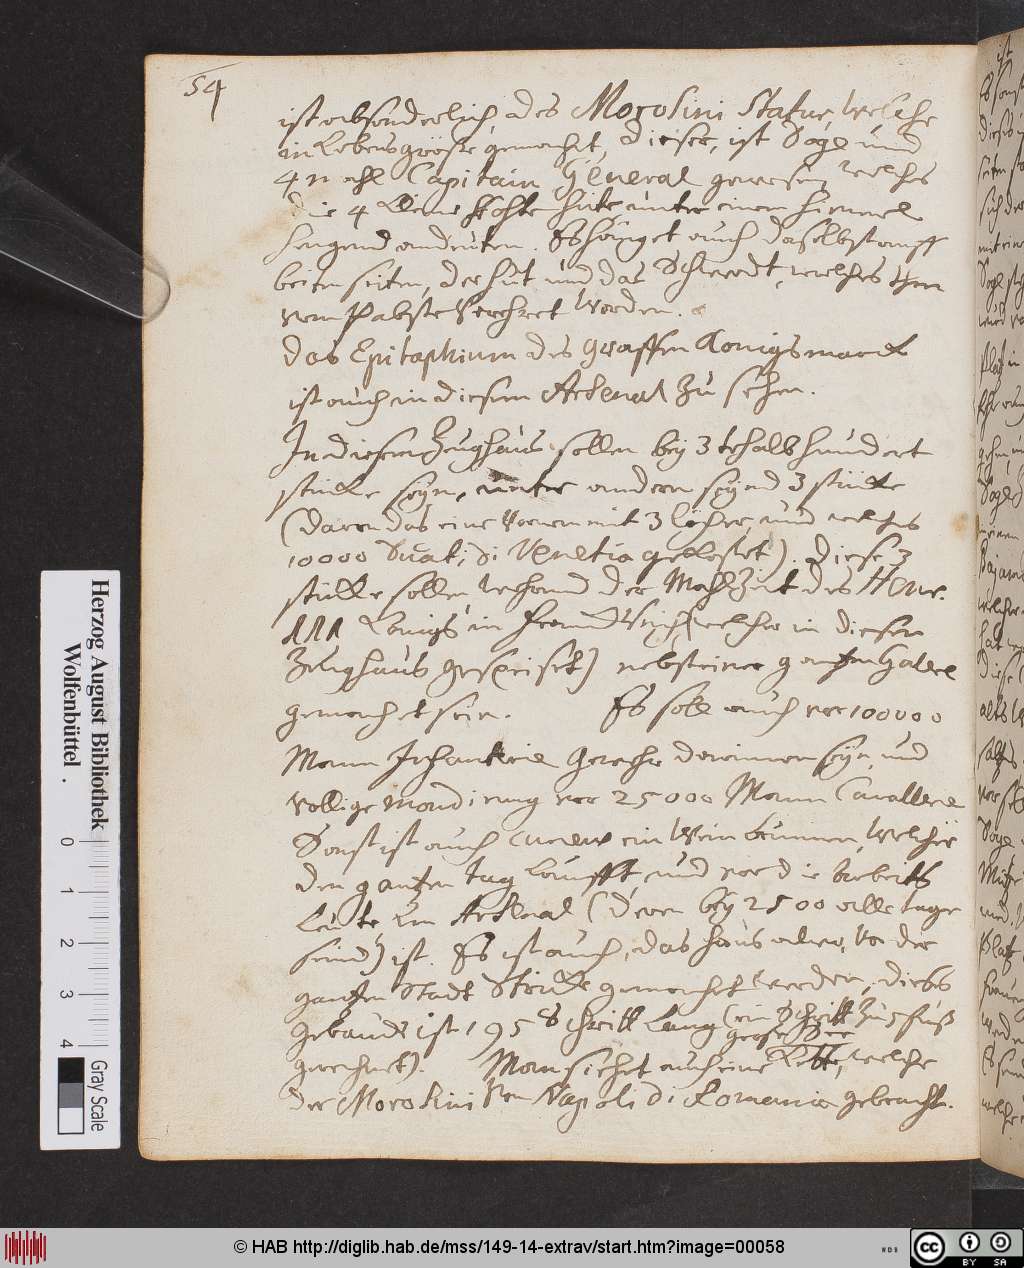 54
ist absonderlich des Morosini Statue, welche
in Lebensgröße gemacht, dieser, ist Doge und
4 mahl Capitain General gewesen, welches
die 4 kleine hüte unter einem himmel
hengend andeuten. Es hänget auch daselbst auff
beiden seiten, der hut und das Schwerdt, welches ihm
vom Pabste Verehret worden.
Das Epitaphium des graffen Konigsmarck
ist auch in diesem Arsenal zu sehen.
In diesem Zeughaus sollen bey 3tehalb hundert
stücke seyn, unter andern seynd 3 stücke
(davon das eine vornen mit 3 löcher, und welches
10000 Ducati di Venetia gekostet). Diese 3
stücke sollen wehrend der Mahlzeit des Henr.
III Königs in Franckreich (welcher in diesem
Zeughaus gespeiset) nebst einer gantzen Galere
gemachet sein. Es soll auch vor 100000
Mann Infanterie Gewehr darinnen seyn, und
vollige mondirung vor 25000 Mann Cavallerie
Sonst ist auch ein Wein brunnen, welcher
den gantzen tag laufft, und vor die arbeits
Leute im Arsenal (deren bey 2500 alle tage
seind) ist. Es ist auch, das haus wo der
gantzen Stadt Stricke gemachet werden, dieses
gebäude ist 195 schritt lang (ein Schritt zu 5 fuß
gerechnet). Man siehet auch eine große Kette, welche
der Morosini von Napoli di Romania gebracht.
ist
Herzog August Bibliothek
Wolfenbüttel.
0 1 2 3 4
Gray Scale
© HAB http://diglib.hab.de/mss/149-14-extrav/start.htm?image=00058
WDB
cc BY SA